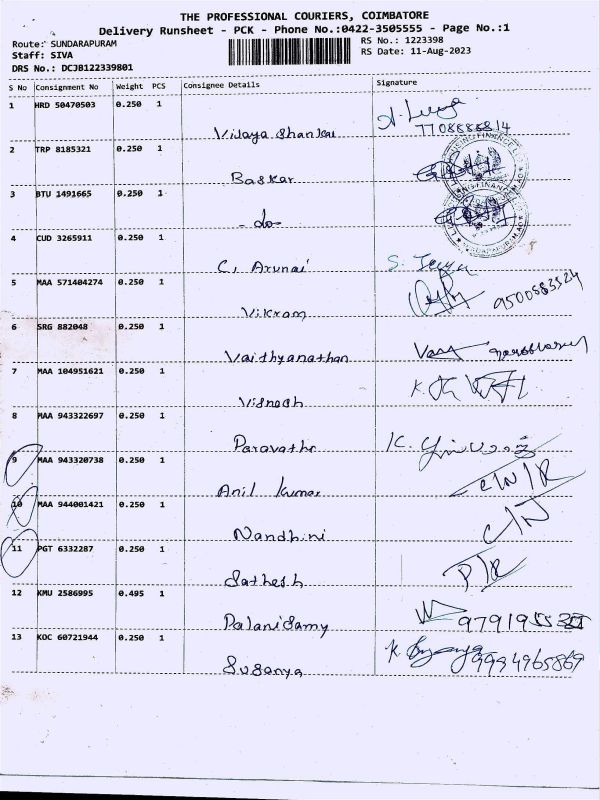 THE PROFESSIONAL COURIERS, COIMBATORE
Delivery Runsheet - PCK - Phone No.:0422-3505555 - Page No.:1
Route: SUNDARAPURAM
RS No.: 1223398
Staff: SIVA
RS Date: 11-Aug-2023
DRS No.: DCJB122339801
S No Consignment No Weight PCS Consignee Details Signature
1 HRD 50470503 0.250 1
Vijaya Shankar
7708888814
2 TRP 8185321 0.250 1
Baskar
3 BTU 1491665 0.250 1
- do -
4 CUD 3265911 0.250 1
C. Arunai
5 MAA 571404274 0.250 1
Vikram
6 SRG 882048 0.250 1
Vaithyanathan
7 MAA 104951621 0.250 1
Vignesh
8 MAA 943322697 0.250 1
K.
9 MAA 943320738 0.250 1
Anil Kumar
10 MAA 944001421 0.250 1
Nandhini
C/N
11 PGT 6332287 0.250 1
Sathesh
12 KMU 2586995 0.495 1
Palanisamy
13 KOC 60721944 0.250 1
Suganya
K. Suganya 9994965869